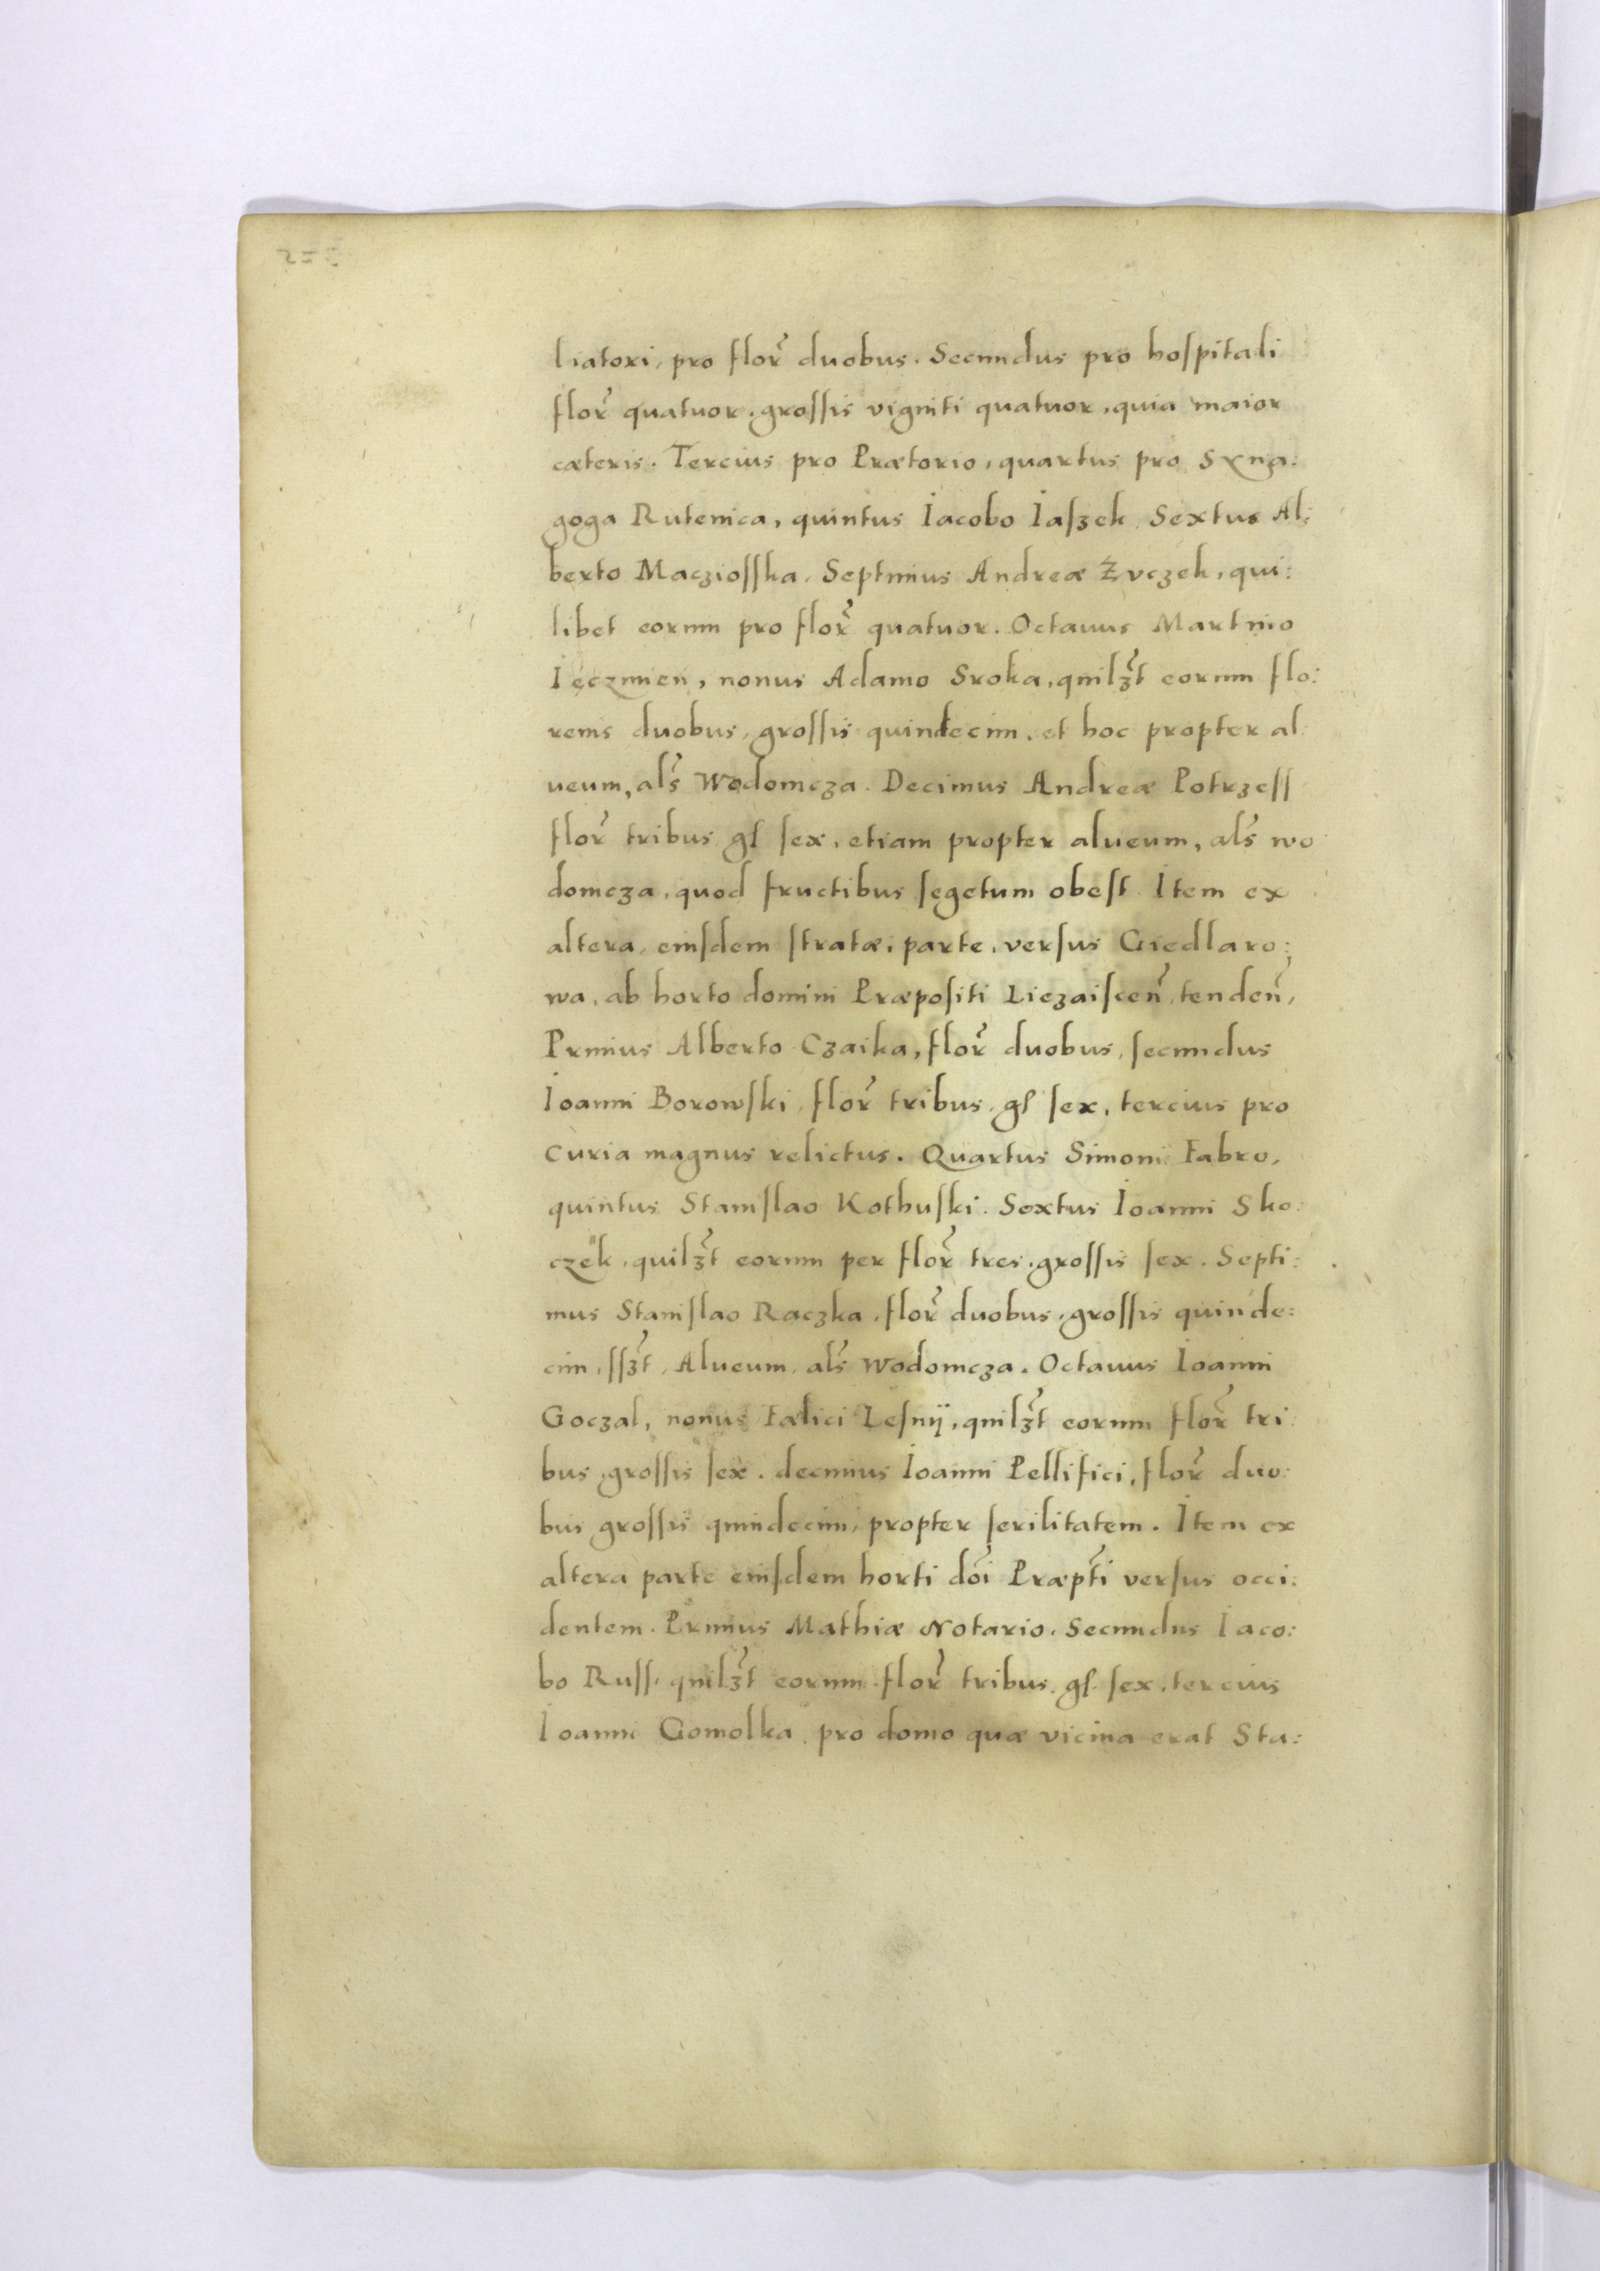 liatori, pro flor̃ duobus. Secundus pro hospitali
flor̃ quatuor, grossis viginti quatuor, quia maior
cæteris. Tercius pro Prætorio, quartus pro Syna:
goga Rutenica, quintus Iacobo Iaszek, Sextus Al:
berto Macziosska, Septimus Andreæ Żvczek, qui:
libet eorum pro flor̃ quatuor. Octauus Martino
Ięczmien, nonus Adamo Sroka, quilꝫt eorum flo:
renis duobus, grossis quindecim, et hoc propter al
ueum, als̃ Wodomcza. Decimus Andreæ Potrzess
flor̃ tribus gſ sex, etiam propter alueum, als̃ wo
domcza, quod fructibus segetum obest. Item ex
altera, eiusdem stratæ, parte, versus Giedlaro:
wa, ab horto domini Præpositi Liezaiscen̄, tenden̄,
Primus Alberto Czaika, flor̃ duobus, secundus
Ioanni Borowski, flor̃ tribus, gſ sex, tercius pro
curia magnus relictus. Quartus Simoni Fabro,
quintus Stanislao Kothuski. Sextus Ioanni Sko:
czek, quilꝫt eorum per flor̃ tres, grossis sex. Septi:
mus Stanislao Raczka, flor̃ duobus, grossis quinde:
cim, ssꝫt, Alueum, als̃ Wodomcza. Octauus Ioanni
Goczal, nonus Fælici Lesnÿ, quilꝫt eorum flor̃ tri
bus, grossis sex. decimus Ioanni Pellifici, flor̃ duo:
bus grossis quindecim, propter serilitatem. Item ex
altera parte eiusdem horti dōi Præpt̄i versus occi:
dentem. Primus Mathiæ Notario. Secundus Iaco:
bo Russ, quilꝫt eorum flor̃ tribus, gſ sex, tercius
Ioanni Gomolka, pro domo quæ vicina erat Sta: